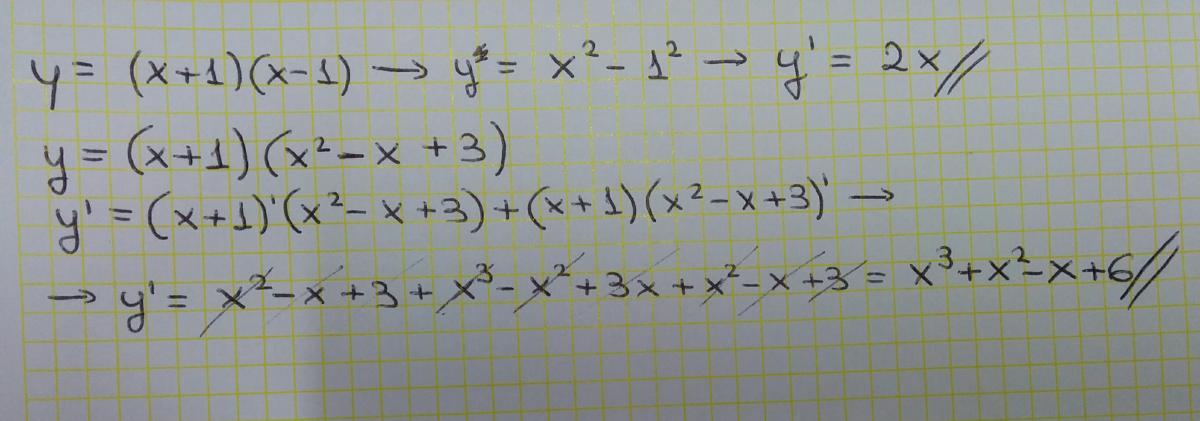 y = (x+1)(x-1) → y = x² - 1² → y' = 2x//
y = (x+1)(x² - x + 3)
y' = (x+1)'(x² - x + 3) + (x+1)(x² - x + 3)' →
→ y' = x² - x + 3 + x³ - x² + 3x + x² - x + 3 = x³ + x² - x + 6//